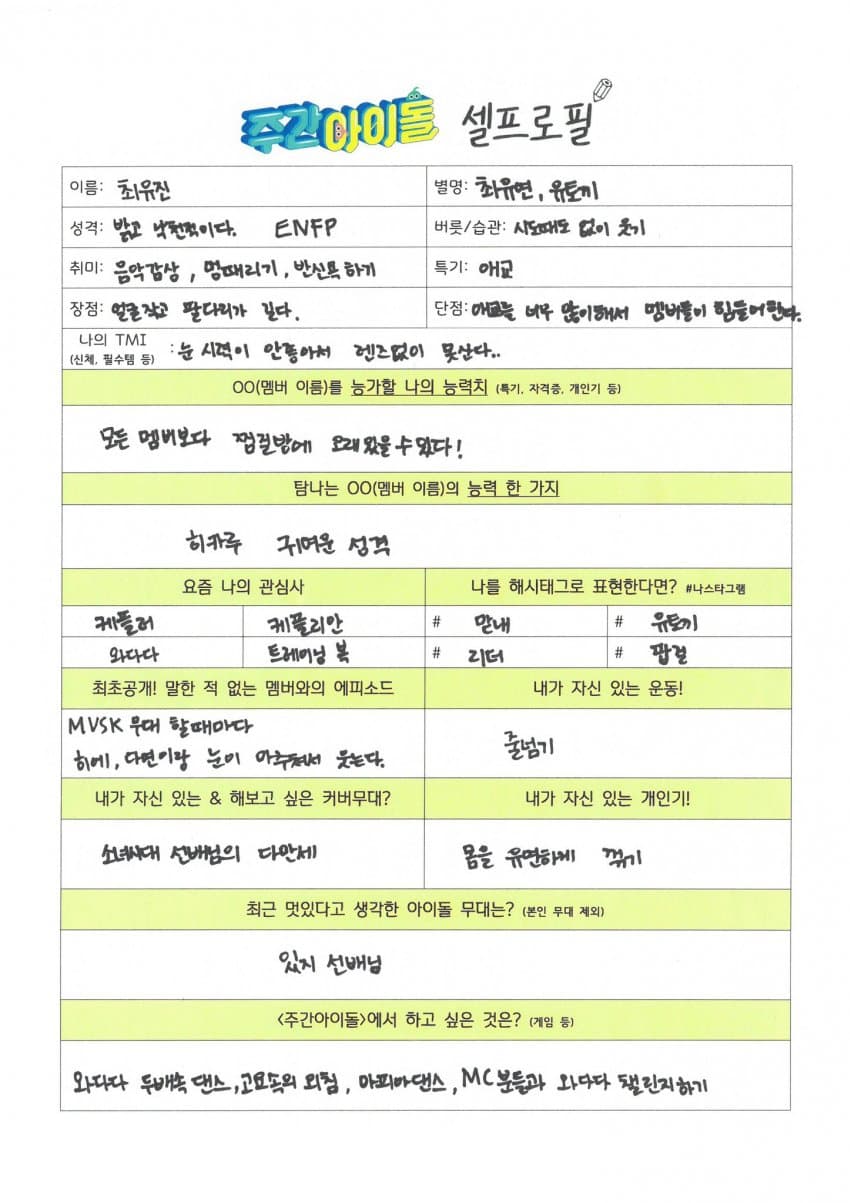 주간아이돌 셀프로필
이름: 최유진
별명: 최유연, 유토끼
성격: 밝고 낙천적이다. ENFP
버릇/습관: 시도때도 없이 웃기
취미: 음악감상, 멍때리기, 반신욕 하기
특기: 애교
장점: 얼굴작고 팔다리가 길다.
단점: 애교를 너무 많이해서 멤버들이 힘들어한다.
나의 TMI
(신체, 필수템 등) : 눈 시력이 안좋아서 렌즈없이 못산다..
OO(멤버 이름)를 능가할 나의 능력치 (특기, 자격증, 개인기 등)
모든 멤버보다 찜질방에 오래있을수있다!
탐나는 OO(멤버 이름)의 능력 한 가지
히카루 귀여운 성격
요즘 나의 관심사
나를 해시태그로 표현한다면? #나스타그램
케플러 케플리안 # 맏내 # 유토끼
와다다 트레이닝 복 # 리더 # 팝걸
최초공개! 말한 적 없는 멤버와의 에피소드
내가 자신 있는 운동!
MVSK 무대 할때마다
히에, 다연이랑 눈이 마주쳐서 웃는다.
줄넘기
내가 자신 있는 & 해보고 싶은 커버무대?
내가 자신 있는 개인기!
소녀시대 선배님의 다만세
몸을 유연하게 꺾기
최근 멋있다고 생각한 아이돌 무대는? (본인 무대 제외)
있지 선배님
<주간아이돌>에서 하고 싶은 것은? (게임 등)
와다다 두배속 댄스, 고요속의 외침, 마피아댄스, MC분들과 와다다 챌린지하기